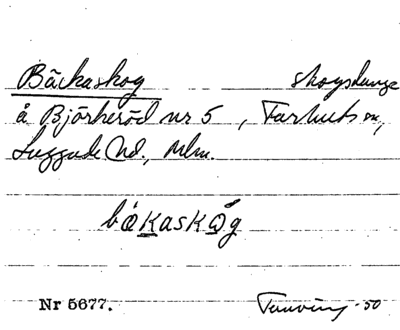 Bäckaskog skogsdunge
å Björkeröd nr 5, Farhults sn,
Luggude hd., Mlm.
båkaskåg
Nr 5677. -50